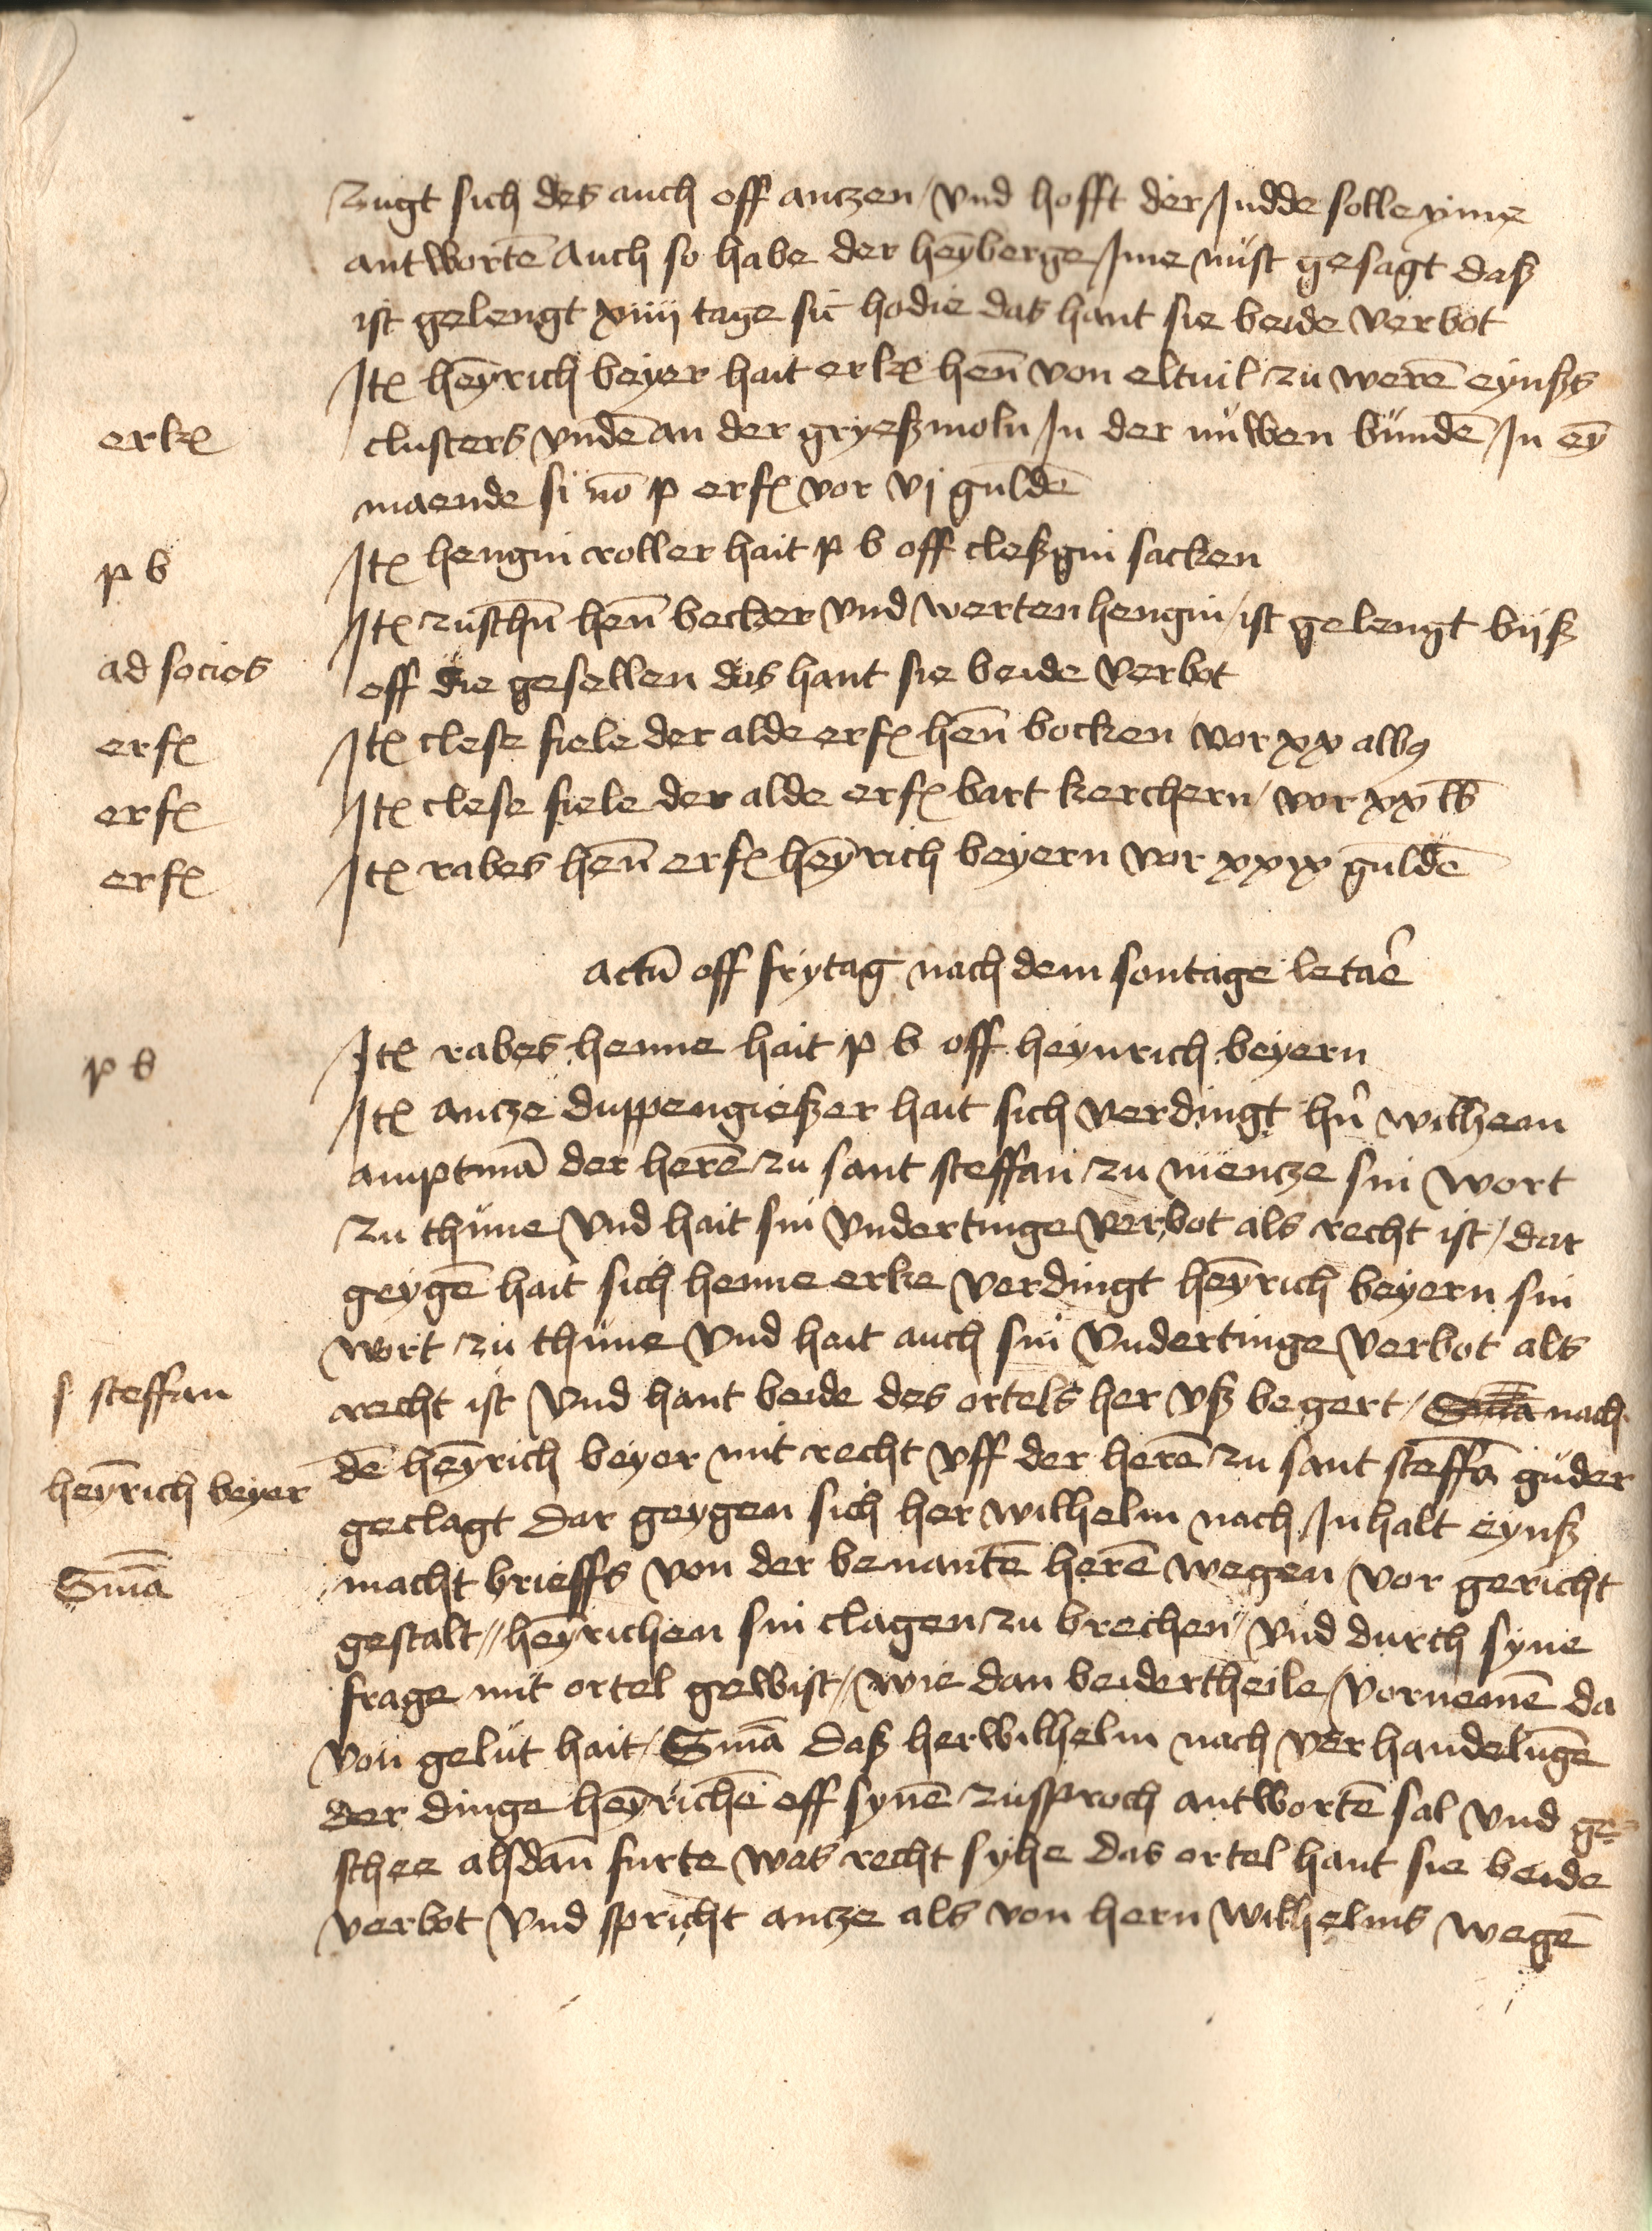 zugt sich des auch off antzen / vnd hofft der Judde solle yme
antworten̄ Auch so habe der heȳberge Jme nust gesagt daß
ist gelengt xiiij tage sic̄ hodie das hant sie beide verbot
Itꝫ heȳrich beyer hait erkꝫ hen̄ von eltuil zu weren̄ eynßs
erkꝫ
clusters vnden̄ an der gryeßmoln Jn der nůwen bunde Jn eȳ
maende si nō p erfꝫ vor vj gulden̄
p b
Itꝫ hengin roller hait p b off cleßgin sacken
Itꝫ zuschn̄ hen̄ becker vnd werten hengin / ist gelengt bijß
ad socios
off die gesellen das hant sie beide verbot
erfꝫ
Itꝫ clese fiele der alde erfꝫ hen̄ bocken vor xx albꝯ
erfꝫ
Itꝫ clese fiele der alde erfꝫ bart kerchern / vor xx lb
erfꝫ
Itꝫ rabes hen̄ erfꝫ heȳrich beyern vor xxx gulden̄
actū off frytag nach dem sontage letar̄e
p b
Itꝫ rabes henne hait p b off heynrich beyern
Itꝫ antze duppengießer hait sich verdingt hn̄ wilhem
amptmā der heren̄ zu sant steffan zu mentze sin wort
zu thune vnd hait sin vndertinge verbot als recht ist / dar
geygen̄ hait sich henne erke verdingt heȳrich beyern sin
wort zu thune vnd hait auch sin vndertinge verbot als
s steffan
recht ist vnd hant beide des ortels her vß begert / Sma nach
heȳrich beyer
dē heȳrich beyer mit recht vff der heren̄ zu sant steffā guder
geclagt dar geygen sich her wilhelm nach Jnhalt eynß
Sm̄a
macht brieffs von der benanten̄ heren̄ wegen vor gericht
gestalt // heȳrichen sin clagen zu brechen // vnd durch syne
frage mit ortel gewist / wie dan beidertheile vornemen̄ da
von gelut hait / Sm̄a daß her wilhelm nach verhandelu̅ge
der dinge heȳrichē off synen̄ zusproch antworten̄ sal vnd ge-
schee alsdan̄ furte was recht syhe das ortel hant sie beide
verbot vnd spricht antze als von hern wilhelms wegen̄